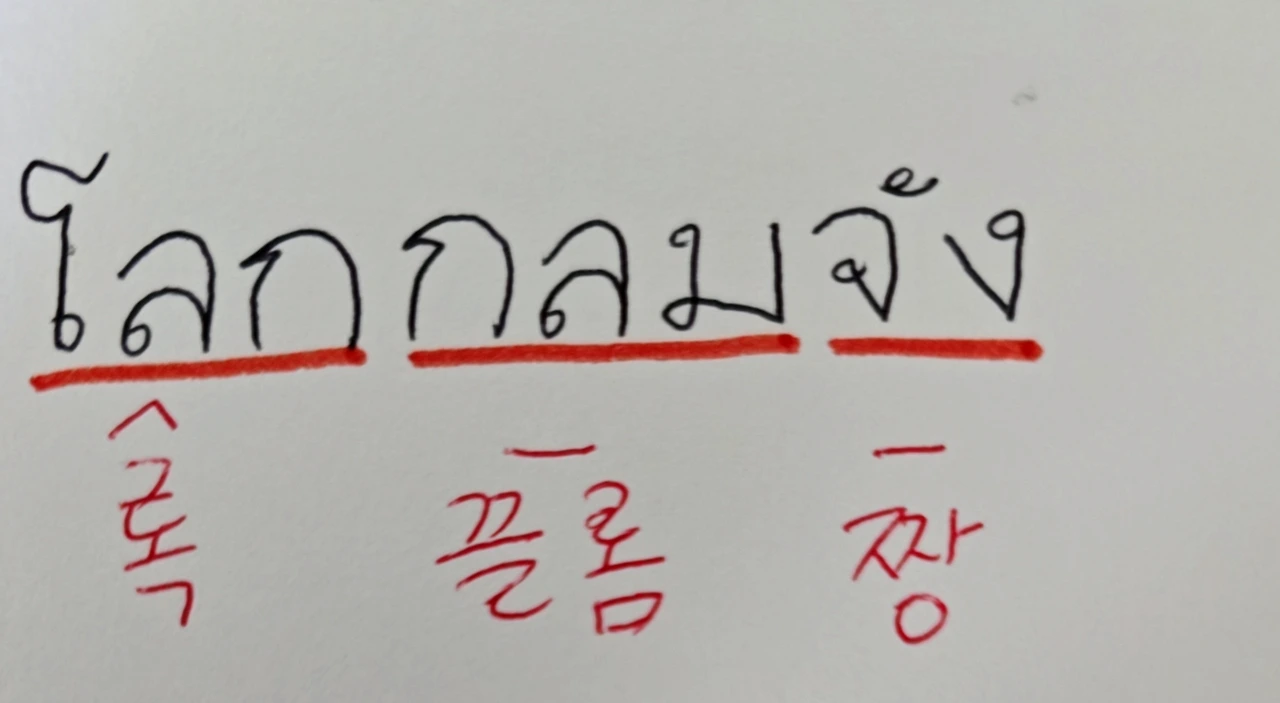 โลกกลมจัง
록 끌롬 짱